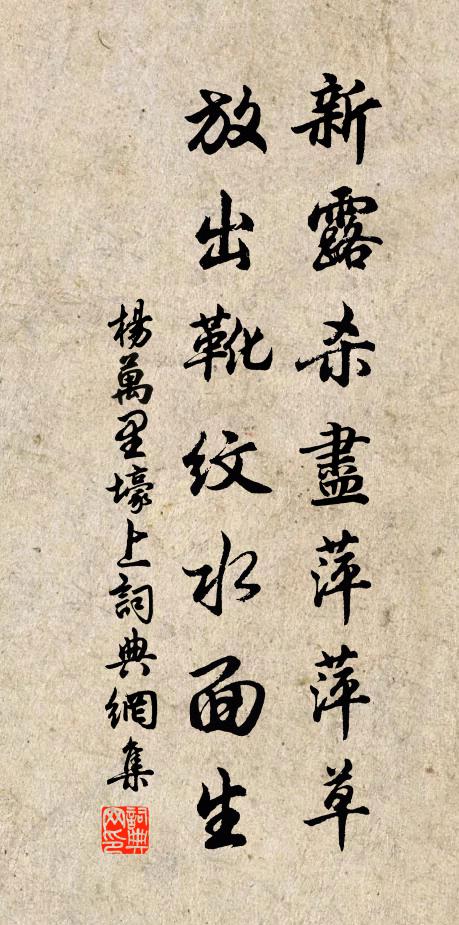 新露杀盡萍萍草
放出靴紋水面生
楊萬里壕上詞典網集
詞典网印